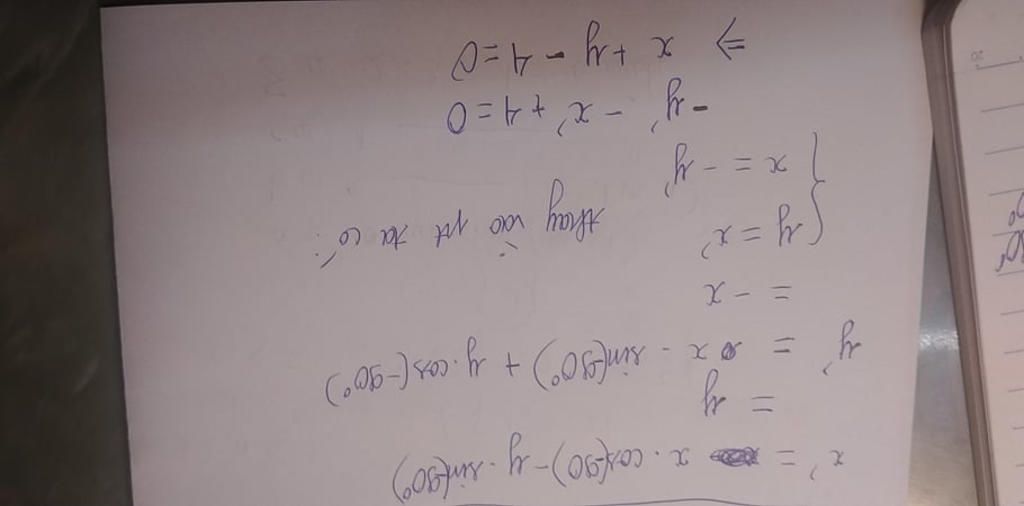 x' = x . cos(-90) - y . sin(-90°)
= y
y' = x . sin(-90°) + y . cos(-90°)
= - x
{ y = x' thay vào pt ta có :
x = - y'
- y' - x' + 4 = 0
=> x + y - 4 = 0
20